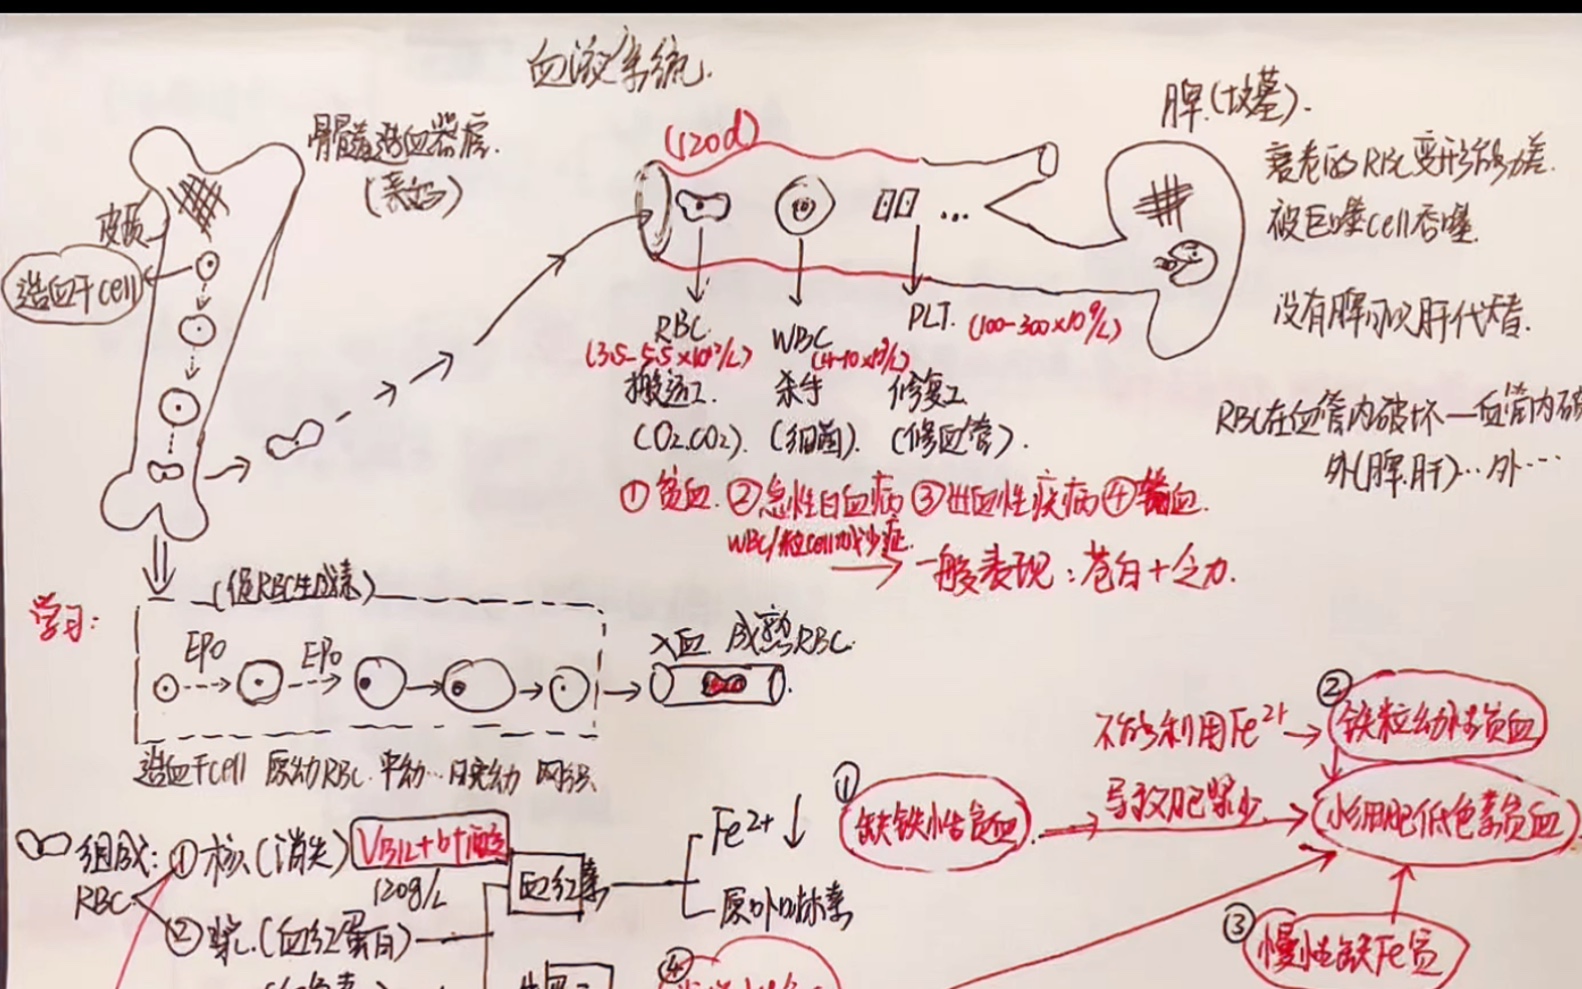 血液系统.
骨髓造血器官.
(120d)
脾.(坟墓).
衰老的RBC变形能力差.
被巨噬cell吞噬.
没有脾可以肝代替.
皮质
造血干cell
RBC.
WBC
PLT.
(3.5-5.5×10¹²/L)
(4-10×10⁹/L)
(100-300×10⁹/L)
搬运工.
杀手
修复工
(O₂.CO₂).
(细菌).
(修血管).
RBC在血管内破坏—血管内破
外(脾.肝)…外…
①贫血.②急性白血病③出血性疾病④输血.
WBC/粒cell减少症.
一般表现:苍白+乏力.
学习:
(促RBC生成素)
EPO
EPO
入血 成熟RBC.
造血干cell 原幼RBC.早幼…晚幼 网织
组成:
RBC
①核(消失)
VB12+叶酸
120g/L
②浆.(血红蛋白)
血红素
Fe²⁺↓
原卟啉
①
缺铁性贫血
导致胞浆少
不能利用Fe²⁺
②
铁粒幼性贫血
小细胞低色素贫血
③
慢性缺Fe贫
④